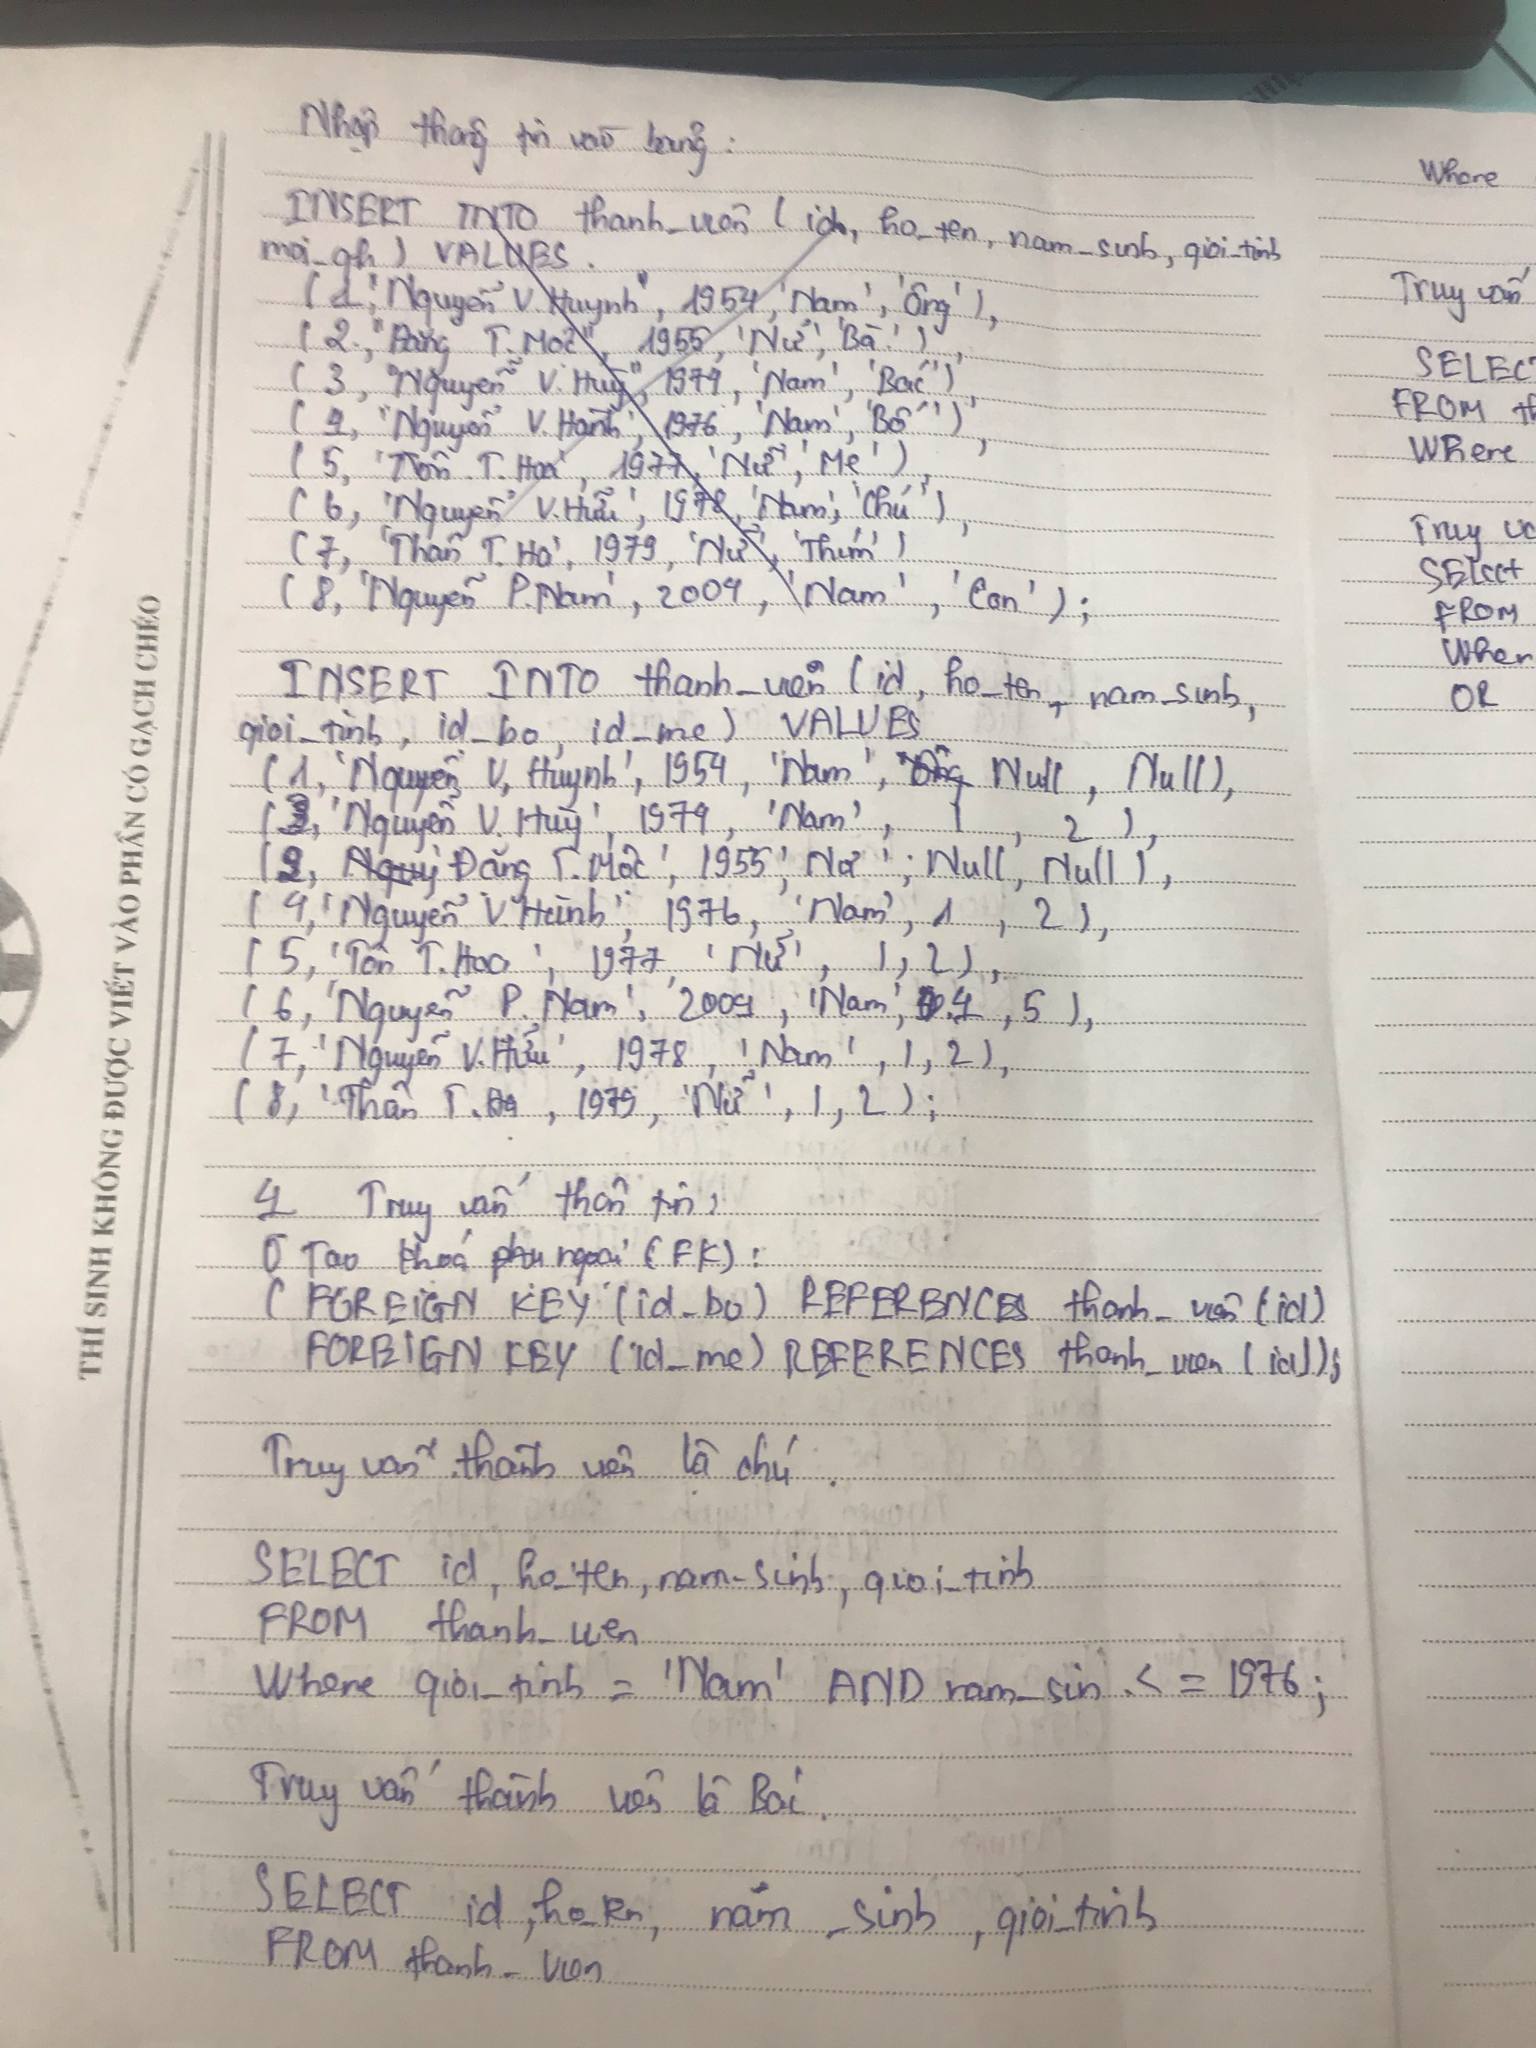 Nhập thông tin vào bảng:
INSERT INTO thanh_viên (id, ho_ten, nam_sinh, gioi_tinh
moi_qh) VALUES.
(1,'Nguyễn V.Huynh", 1954, 'Nam', 'Ông'),
(2, "Đặng T.Mốc", 1955, 'Nữ', 'Bà'),
(3, "Nguyễn V.Huỳ", 1974, 'Nam', 'Bác'),
(4, "Nguyễn V.Hành', 1976, 'Nam', 'Bố'),
(5, 'Tôn T.Hoa', 1977, 'Nữ', 'Mẹ'),
(6, 'Nguyễn V.Hữu', 1978, 'Nam', 'Chú'),
(7, 'Thân T.Hà', 1979, 'Nữ', 'Thím')
(8, 'Nguyễn P.Nam', 2004, 'Nam', 'Con');
INSERT INTO thanh_viên (id, ho_ten, nam_sinh,
gioi_tinh, id_bo, id_me) VALUES
(1, 'Nguyễn V. Huynh', 1954, 'Nam', Null, Null),
(3, 'Nguyễn V. Huỳ', 1974, 'Nam', 1, 2),
(2, Đặng T.Mốc', 1955, 'Nữ', Null, Null),
(4, 'Nguyễn V.Hành', 1976, 'Nam', 1, 2),
(5, 'Tôn T.Hoa', 1977, 'Nữ', 1, 2),
(6, 'Nguyễn P. Nam', 2004, 'Nam', 4, 5),
(7, 'Nguyễn V.Hữu', 1978, 'Nam', 1, 2),
(8, 'Thân T.Hà, 1979, 'Nữ', 1, 2);
4 Truy vấn thôn tin:
Tạo khoá ngoại (FK):
(FOREIGN KEY (id_bo) REFERENCES thanh_viên (id)
FOREIGN KEY (id_me) REFERENCES thanh_vien (id));
Truy vấn thành viên là chú.
SELECT id, ho_ten, nam_sinh, gioi_tinh
FROM thanh_vien
Where gioi_tinh = 'Nam' AND nam_sin <= 1976;
Truy vấn thành viên là Bác.
SELECT id, ho_ten, năm_sinh, gioi_tinh
FROM thanh_vien
THÍ SINH KHÔNG ĐƯỢC VIẾT VÀO PHẦN CÓ GẠCH CHÉO
Where
Truy vấn
SELECT
FROM th
Where
Truy vấ
SElect
FROM
Wher
OR